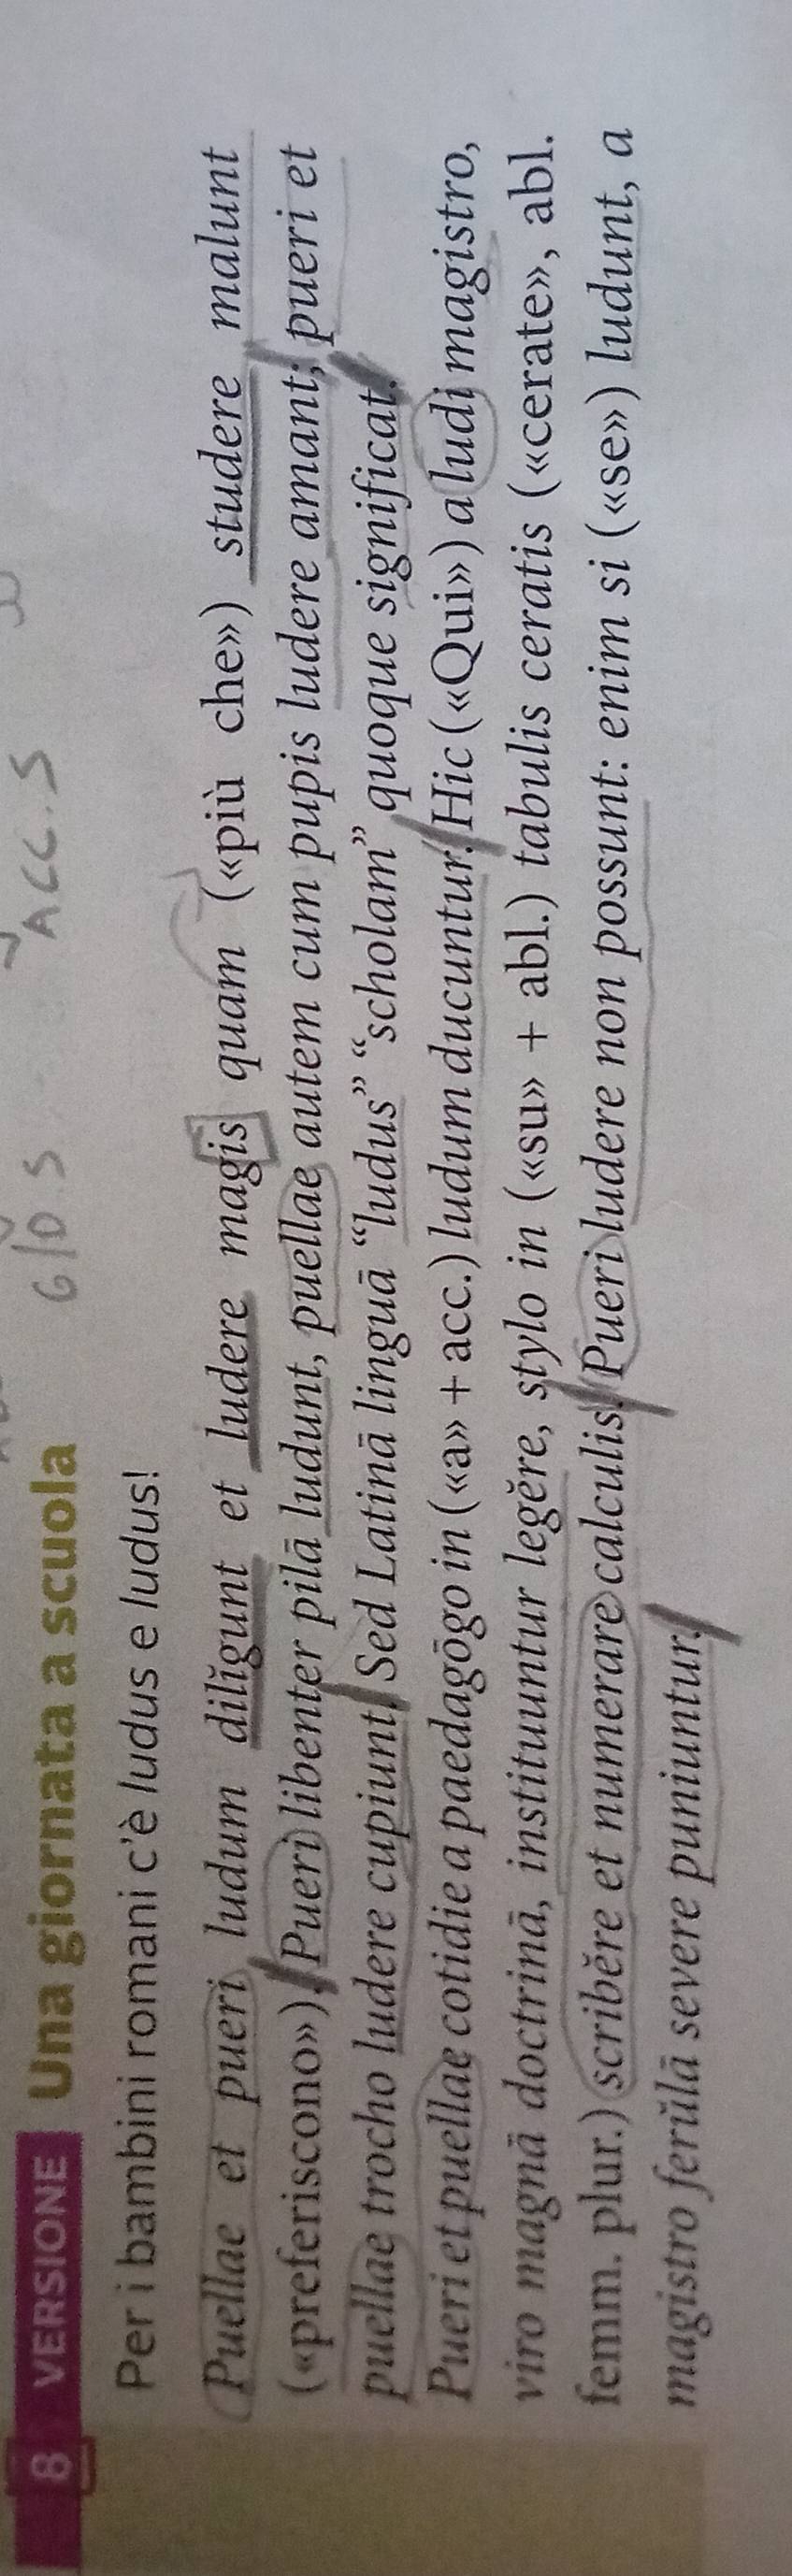 ACC.S
G/D.S
8 VERSIONE Una giornata a scuola
Per i bambini romani c'è ludus e ludus!
Puellae et pueri ludum dilĭgunt et ludere magis quam («più che») studere malunt
(«preferiscono»). Pueri libenter pilā ludunt, puellae autem cum pupis ludere amant; pueri et
puellae trocho ludere cupiunt. Sed Latinā linguā “ludus” “scholam” quoque significat.
Pueri et puellae cotidie a paedagōgo in («a» + acc.) ludum ducuntur. Hic («Qui») a ludi magistro,
viro magnā doctrinā, instituuntur legĕre, stylo in («su» + abl.) tabulis ceratis («cerate», abl.
femm. plur.) scribĕre et numerare calculis. Pueri ludere non possunt: enim si («se») ludunt, a
magistro ferŭlā severe puniuntur.